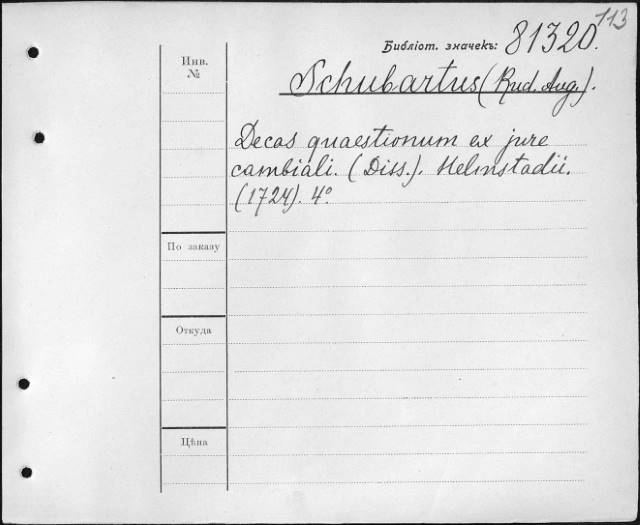 113
Библіот. значекъ: 81320.
Инв.
№
Schubartus (Rud. Aug.).
Decas quaestionum ex jure
cambiali. (Diss.). Helmstadii.
(1724). 4°.
По заказу
Откуда
Цѣна